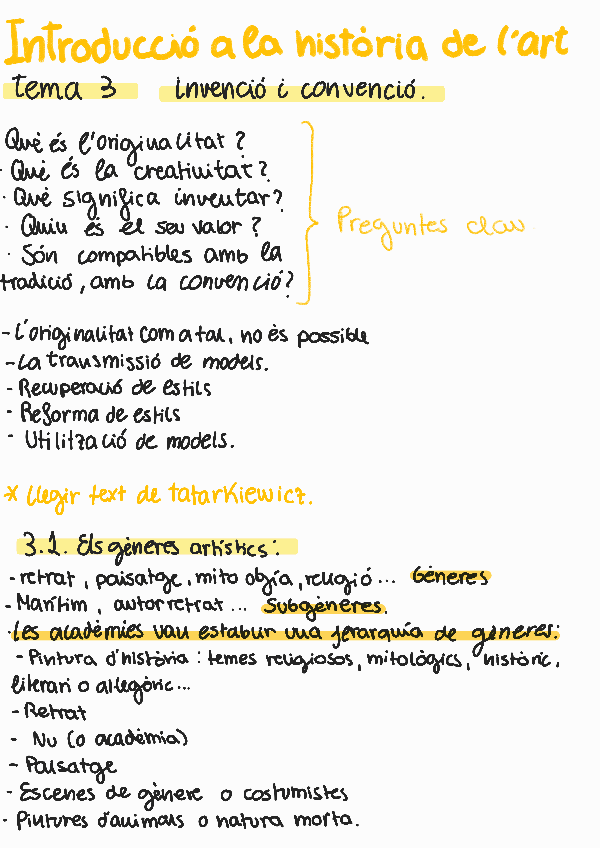 Introducció a la història de l'art
tema 3 invenció i convenció.
Què és l'originalitat?
· Què és la creativitat?
· Què significa inventar?
· Quin és el seu valor?
· Són compatibles amb la
tradició, amb la convenció?
Preguntes clau
- L'originalitat com a tal, no és possible
- La transmissió de models.
- Recuperació de estils
- Reforma de estils
- Utilització de models.
* Llegir text de tatarkiewicz.
3.1. Els gèneres artístics:
- retrat, paisatge, mitología, religió... Gèneres
- Marítim, autorretrat... Subgèneres.
· Les acadèmies van establir una jerarquía de gèneres:
- Pintura d'història: temes religiosos, mitològics, històric,
literari o al·legòric...
- Retrat
- Nu (o acadèmia)
- Paisatge
- Escenes de gènere o costumistes
- Pintures d'animals o natura morta.